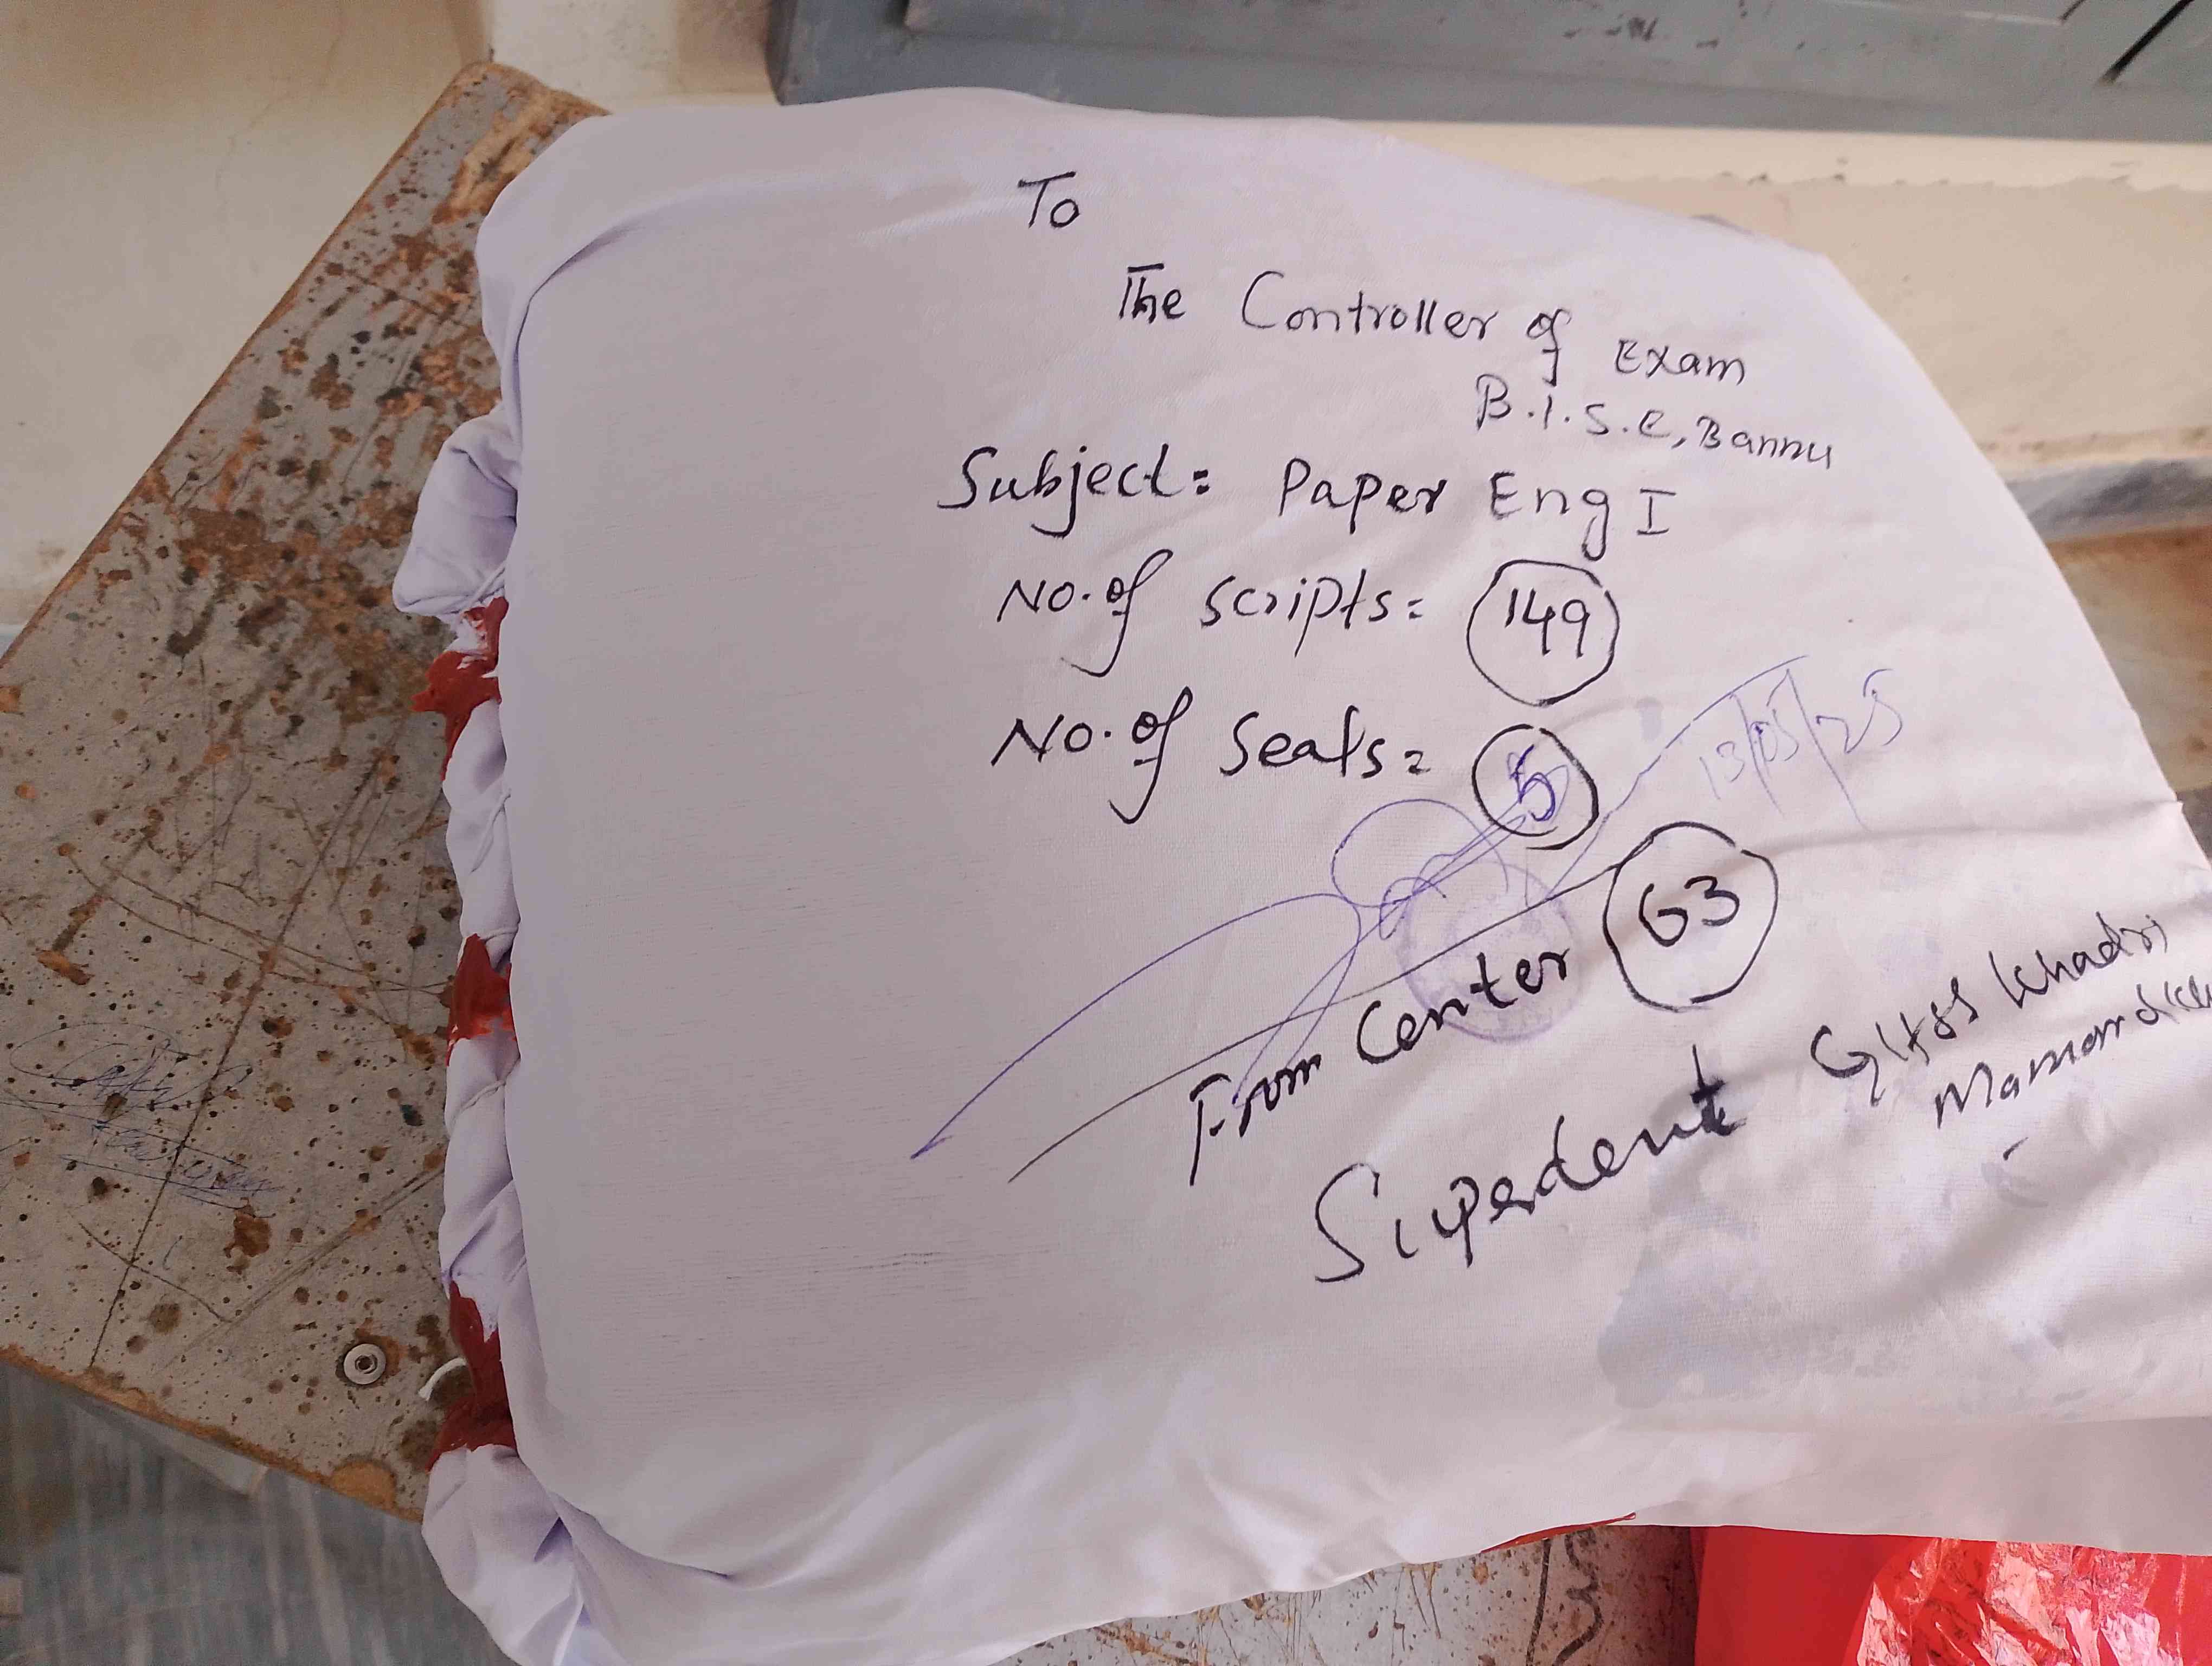 To
The Controller of Exam
B.I.S.E, Bannu
Subject: Paper Eng I
No. of Scripts: 149
No. of Seals: 5
13/05/25
From Center 63
Superdent GHSS Khadri
Mamand Khel